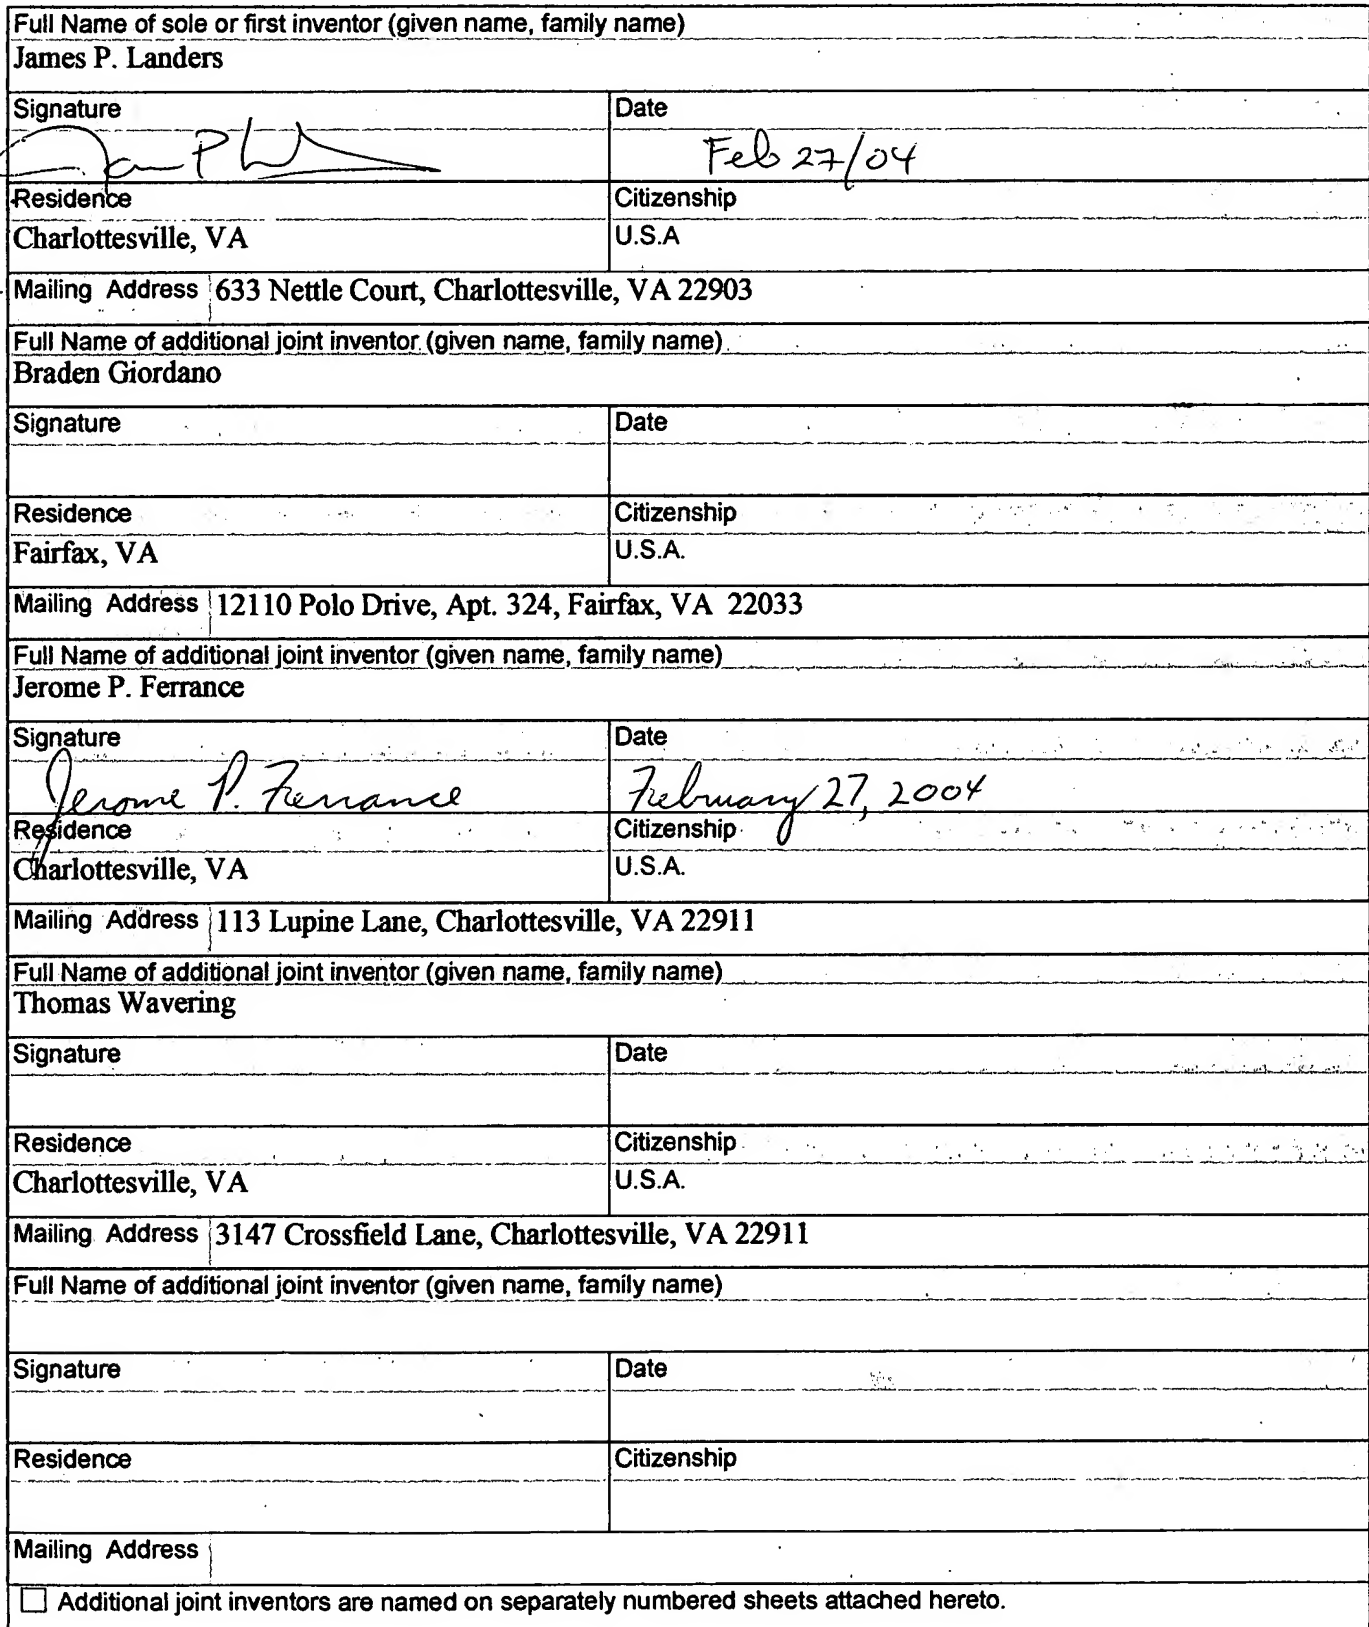 Full Name of sole or first inventor (given name, family name)
James P. Landers
Signature Date
James P L Feb 27/04
Residence Citizenship
Charlottesville, VA U.S.A
Mailing Address 633 Nettle Court, Charlottesville, VA 22903
Full Name of additional joint inventor (given name, family name)
Braden Giordano
Signature Date
Residence Citizenship
Fairfax, VA U.S.A.
Mailing Address 12110 Polo Drive, Apt. 324, Fairfax, VA 22033
Full Name of additional joint inventor (given name, family name)
Jerome P. Ferrance
Signature Date
Jerome P. Ferrance February 27, 2004
Residence Citizenship
Charlottesville, VA U.S.A.
Mailing Address 113 Lupine Lane, Charlottesville, VA 22911
Full Name of additional joint inventor (given name, family name)
Thomas Wavering
Signature Date
Residence Citizenship
Charlottesville, VA U.S.A.
Mailing Address 3147 Crossfield Lane, Charlottesville, VA 22911
Full Name of additional joint inventor (given name, family name)
Signature Date
Residence Citizenship
Mailing Address
☐ Additional joint inventors are named on separately numbered sheets attached hereto.